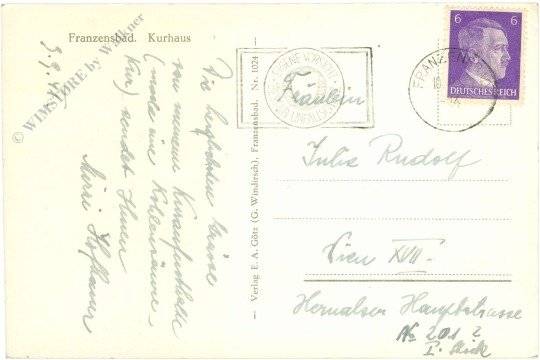 Franzensbad. Kurhaus
3.9.44
© WIMSTORE by Walkner
Die herzlichsten Grüsse
von meinem Kuraufenthalte
(mache eine Kohlensäure-
kur) sendet Ihnen
Mizzi Hofbauer
Verlag E. A. Götz (G. Windirsch), Franzensbad. Nr. 1024
FRANZENS
6 6
DEUTSCHES REICH
Fräulein
Julie Rudolf
Wien XVII
Hernalser Hauptstrasse
No 201
I. Stock